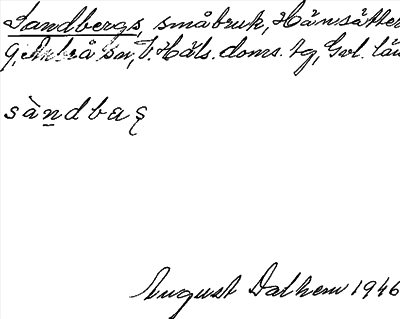 Sandbergs, småbruk, Hämsätter
g, Arbrå sn, V. Häls. doms. tg, Gvl. län
sàndbaʂ
August Dalhem 1946